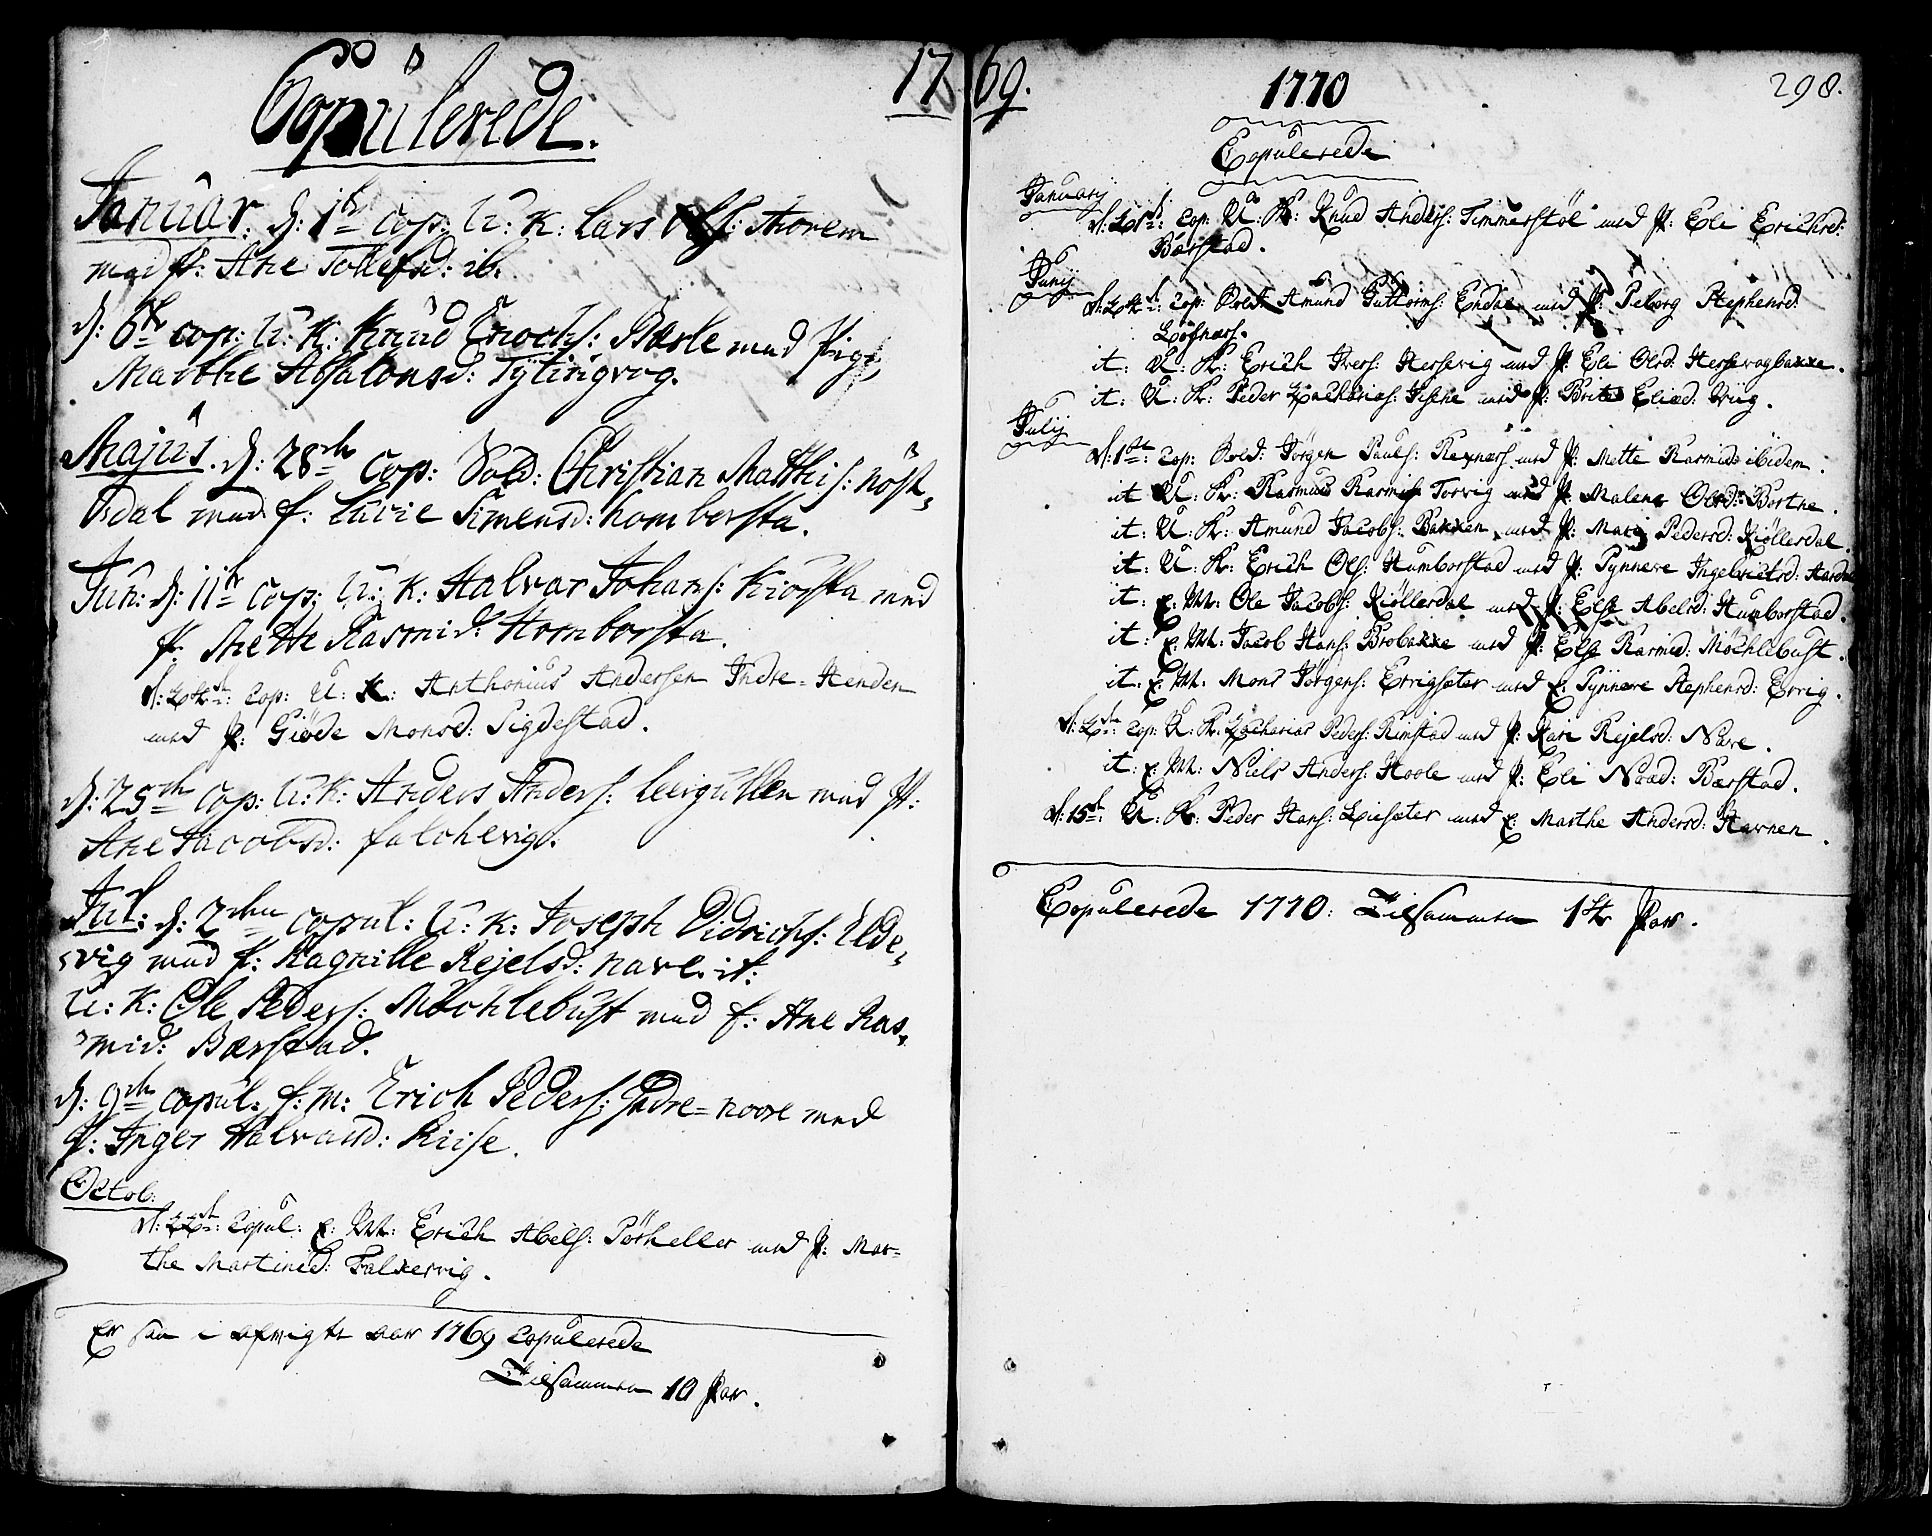 Copulerede. 1769.
Januar. d: 1st cop: U: K: Lars Ols: Morem
med P: Ane Tollefsd: ib.
d: 6te cop: U: K: Knud Enochs: Barle med Pige
Marthe Absalonsd: Tytingvog.
Majus. d: 28de Cop: Sold: Christian Matthis: Nøst-
dal med P: Lavie Simensd: Homborsta.
Jun: d: 11te Cop: U: K: Halvar Johans: Kiørsta med
P: Mette Rasmid: Homborsta.
d: 24de: Cop: U: K: Anthonius Andersen Indre-Henden
med P: Giøde Monsd: Sigdestad.
d: 25de Cop: U: K: Anders Anders: Leirgullen med P:
Ane Jacobsd: Falchevig.
Jul: d: 2den Copul: U: K: Joseph Didrichs: Elde-
vig med P: Ragnille Rejelsd: Nave. it:
U: K: Ole Peders: Møchlebust med P: Ane Ras-
mid: Barstad.
d: 9de Copul: E: M: Erich Peders: Indre-Noore med
P: Inger Halvarsd: Riise.
Octob:
d: 22de: Copul: E: M: Erich Abels: Pørkeller med P: Mar-
the Martined: Falkevig.
Er saa i afvigte aar 1769 Copulerede
Tilsammen 10 Par.
1770
298.
Copulerede
January
d: 21de: Cop: U: K: Knud Anders: Timmerstøl med P: Eli Erichsd:
Barstad.
Junij
d: 24de: Cop: Sold: Amund Guttorms: Endal med P: Seborg Stephensd:
Løchnæs.
it: U: K: Erich Ivers: Hessevig med P: Eli Olsd: Hessevagbakke.
it: U: K: Peder Zacharias: Ische med P: Brite Eliæd: Vüg.
Julij
d: 1ste: Cop: Sold: Jørgen Pauls: Rexnæss med P: Mette Rasmid: ibidem.
it: U: K: Rasmus Rasmis: Torvig med P: Malene Olsd: Borthe.
it: U: K: Amund Jacobs: Bakken med P: Mari Pedersd: Kiøllerdal.
it: U: K: Erich Ols: Humborstad med P: Synneve Ingebrictsd: Aardal
it: E: M: Ole Jacobs: Kiøllerdal med P: Else Abelsd: Humborstad.
it: E: M: Jacob Hans: Brobakke med P: Else Rasmid: Møchlebust.
it: E: M: Mons Jørgens: Errigsæter med E: Synneve Stephensd: Errig.
d: 8de: Cop: U: K: Zacharias Peders: Rimstad med P: Kari Rejelsd: Nave.
it: E: M: Niels Anders: Hoole med P: Eli Naad: Barstad.
d: 15de: U: K: Peder Hans: Liesæter med E: Marthe Andersd: Havnen.
Copulerede 1770: Tilsammen 14 Par.